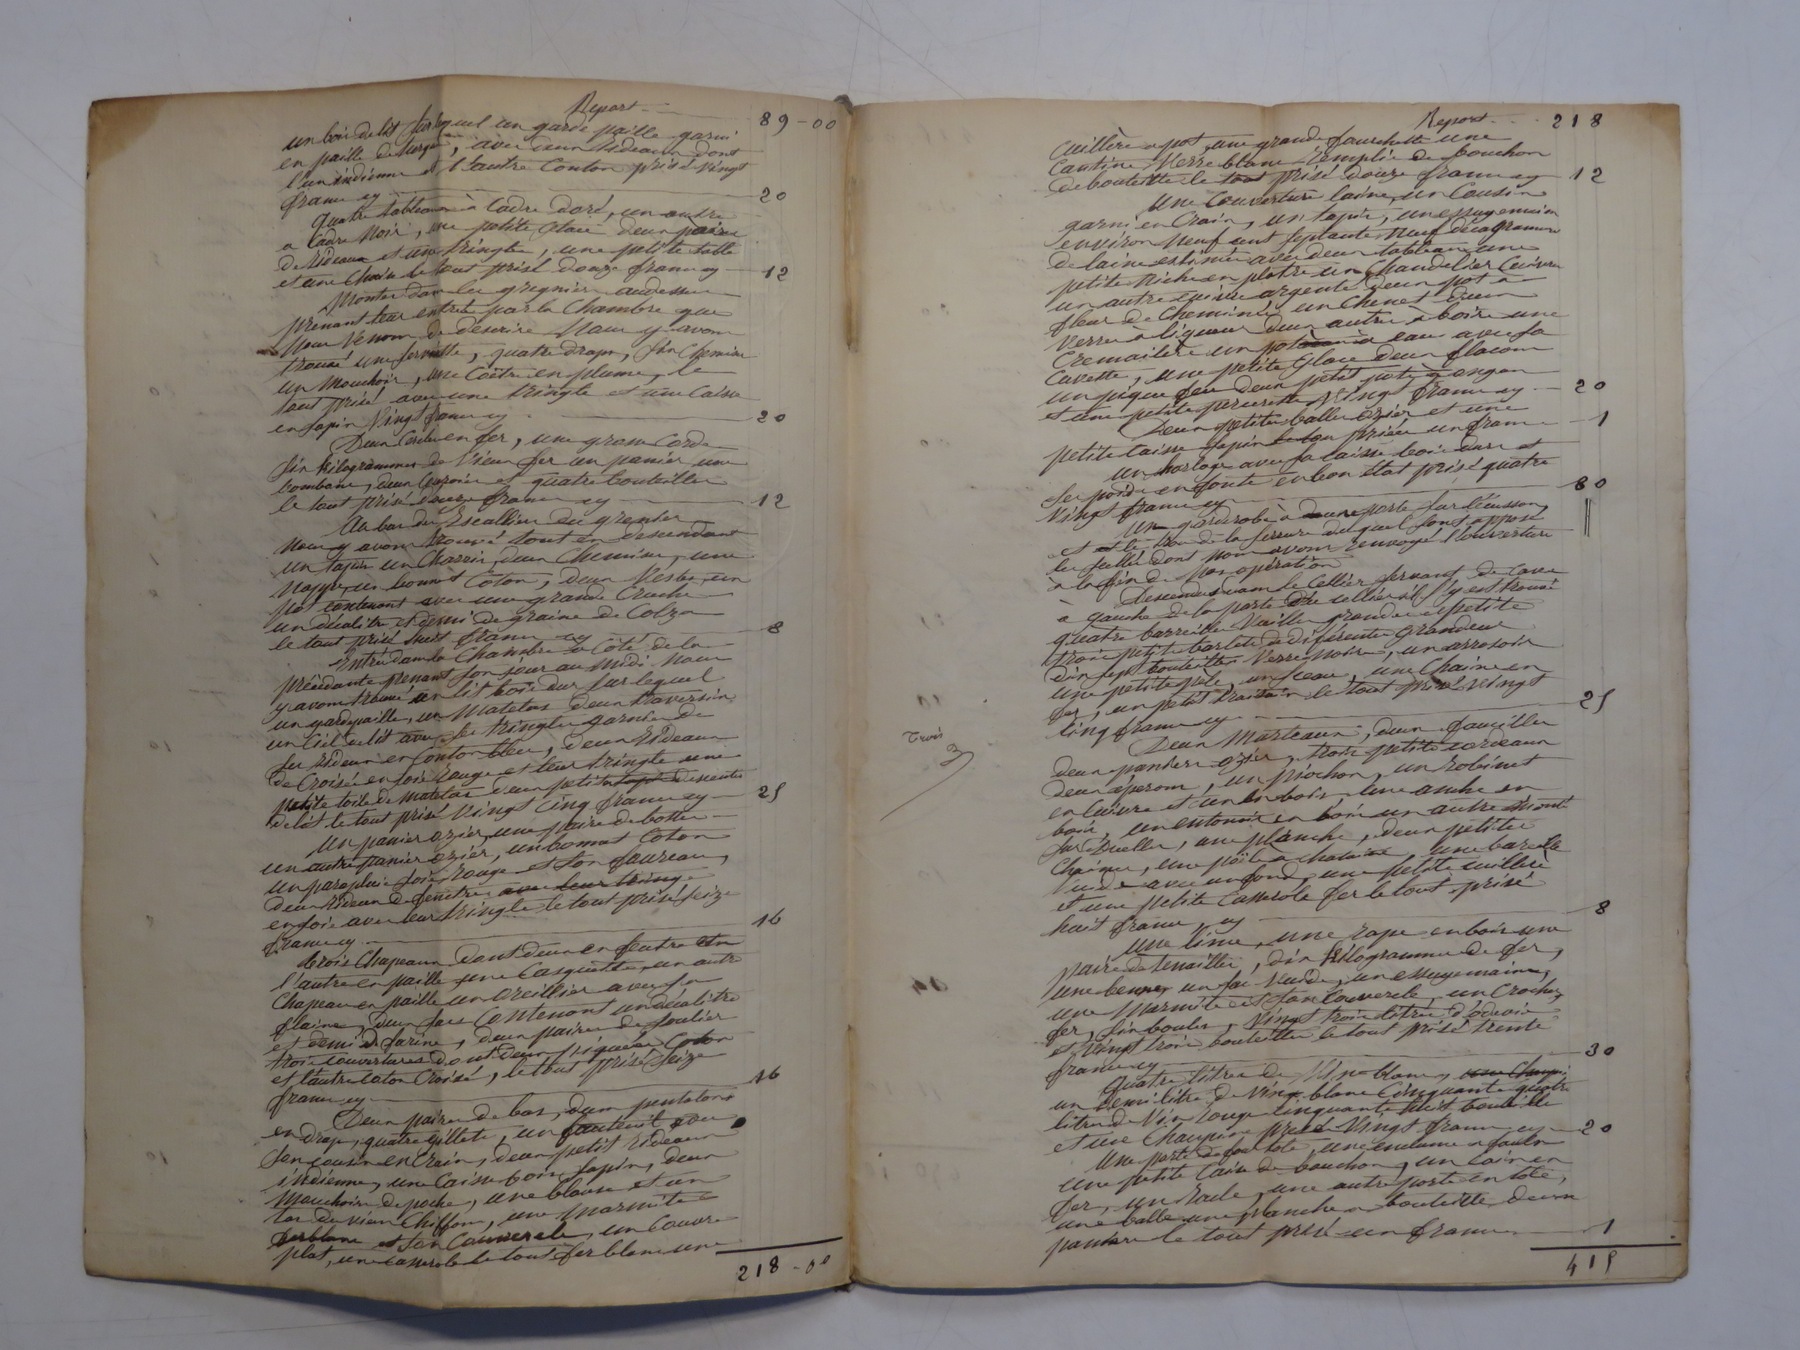 Report 89-00
un bois de lit sur lequel un garde paille garni
en paille de turquie, avec deux Rideaux dont
l'un indienne et l'autre Conton prisé Vingt
francs cy 20
Quatre tableaux à Cadre doré, un autre
a Cadre Noir, une petite Glace deux paires
de Rideaux et une tringle, une petite table
et une Chaise le tout prisé douze francs cy 12
Montés dans les greniers audessus
prenant leur entrée par la Chambre que
Nous Venons de decrire Nous y avons
trouvé une serviette, quatre draps, six Chemises
un Mouchoir, une Coëtre en plume, le
tout prisé avec une tringle et une Caisse
en sapin Vingt francs cy 20
Deux Cercles en fer, une grosse Corde
six Kilogrammes de Vieux fer un panier une
bombane, deux et quatre bouteilles
le tout prisé douze francs cy 12
Au bas des Escalliers du grenier
Nous y avons trouvé tout en descendant
un tapis un Charris, deux Chemises, une
Nappe, un bonnet Coton, deux Vestes, un
pot contenant avec une grande Cruche
un décalitre et demi de graine de Colza
le tout prisé huit francs cy 8
Entrés dans la Chambre à Côté de la
précédante prenant son jour au midi Nous
y avons trouvé un lit bois dur sur lequel
un gardepaille, un Matelas deux traversins
un Ciel de lit avec ses tringles garnies de
ses Rideaux en Conton bleu, deux Rideaux
de Croisée en soie Rouge et leur tringle une
petite toile de Matelas deux petites descentes
de lit le tout prisé Vingt Cinq francs cy 25
Un panier ozier, une paire de bottes
un autre panier ozier, un bonnet Coton
un parapluie soie Rouge et son faureau,
deux Rideaux de fenêtres avec leur tringe
en soie avec leur tringle le tout prisé Seize
francs cy 16
trois Chapeaux dont deux en feutre et
l'autre en paille une Casquette, un autre
Chapeau en paille un Oreillier avec sa
flaine, deux sacs Contenant un décalitre
et demi de farine, deux paires de soulier
trois couvertures dont deux piquées Coton
et l'autre coton Croisé, le tout prisé Seize
francs cy 16
Deux paires de bas, deux pantalons
en drap, quatre gillets, un fauteuil avec
son cousin en Crain, deux petits Rideaux
indienne, une Caisse bois sapin, deux
Mouchoirs de poche, une blouse et un
tas de vieux Chiffons, une marmite
ferblanc et son Couvercle, un Couvre
plat, une casserole le tout fer blanc une
218-00
Report 218
cuillère a pot, une grande fourchette une
Cantine Verre blanc remplie de bouchon
de bouteille le tout prisé douze francs cy 12
une Couverture laine, un Cousin
garni en Crain, un tapis, un essuyemain
environ Neuf cent septante Neuf décagrammes
de laine estimée avec deux tableaux une
petite Niche en platre un Chandelier Cuivre
un autre cuivre argenté deux pot à
fleur de Cheminée un Chenet deux
Verre à liqueur deux autres à boire une
Cremaillère un pot à eau avec sa
Cuvette, une petite Glace deux flacons
un pique feu deux petits pots
et une petite Vingt francs cy 20
Deux petites balles ozier et une
petite Caisse sapin le tou prisée un franc 1
un horloge avec sa caisse bois dur et
ses poids en fonte en bon état prisé quatre
Vingt francs cy 80
Un garderobe à une porte sur l'écusson
et le trou de la serrure duquel sont apposé
les scellés dont nous avons renvoyé l'ouverture
à la fin de Nos opération
Descendus dans le Cellier servant de Cave
à gauche de la porte du cellier il s'y est trouvé
quatre barreilles Vieilles grandes et petite
trois petits barlets de différentes grandeur
dix sept bouteilles Verre Noire, un arrosoir
une petite pele, un sceau, une Chaine en
fer, un petit le tout prisé Vingt
Cinq francs cy 25
Trois
Deux Marteaux, deux faucilles
deux paniers ozier, trois petits cordeaux
deux eperons, un piochon, un Robinet
en Cuivre et un en bois une anche en
bois, un entonnoir en bois un autre
une planche, deux petites
Chaines, une poële a chataine, une bareille
Vuide avec un fond, une petite cuillère
et une petite casserole fer le tout prisé
huit francs cy 8
Une lime, une rape en bois une
paire de tenailles, dix Kilogrammes de fer,
une benne, un sac Vuide, un essuyemains,
une Marmite et son Couvercle, un Crochet
fer, six boules, Vingt trois litres d'eau de vie
et Vingt trois bouteilles le tout prisé trente
francs cy 30
Quatre litres de Vin blanc,
un demi litre de Vin blanc Cinquante quatre
litres de Vin Rouge Cinquante huit bouteilles
et une Chaupine prisé Vingt francs cy 20
Une porte de four tole, une enclume a faulx
une petite Caisse de bouchon, un coin en
fer, un Racle, une autre porte en tole,
une balle une planche a bouteille deux
paniers le tout prisé un franc 1
415